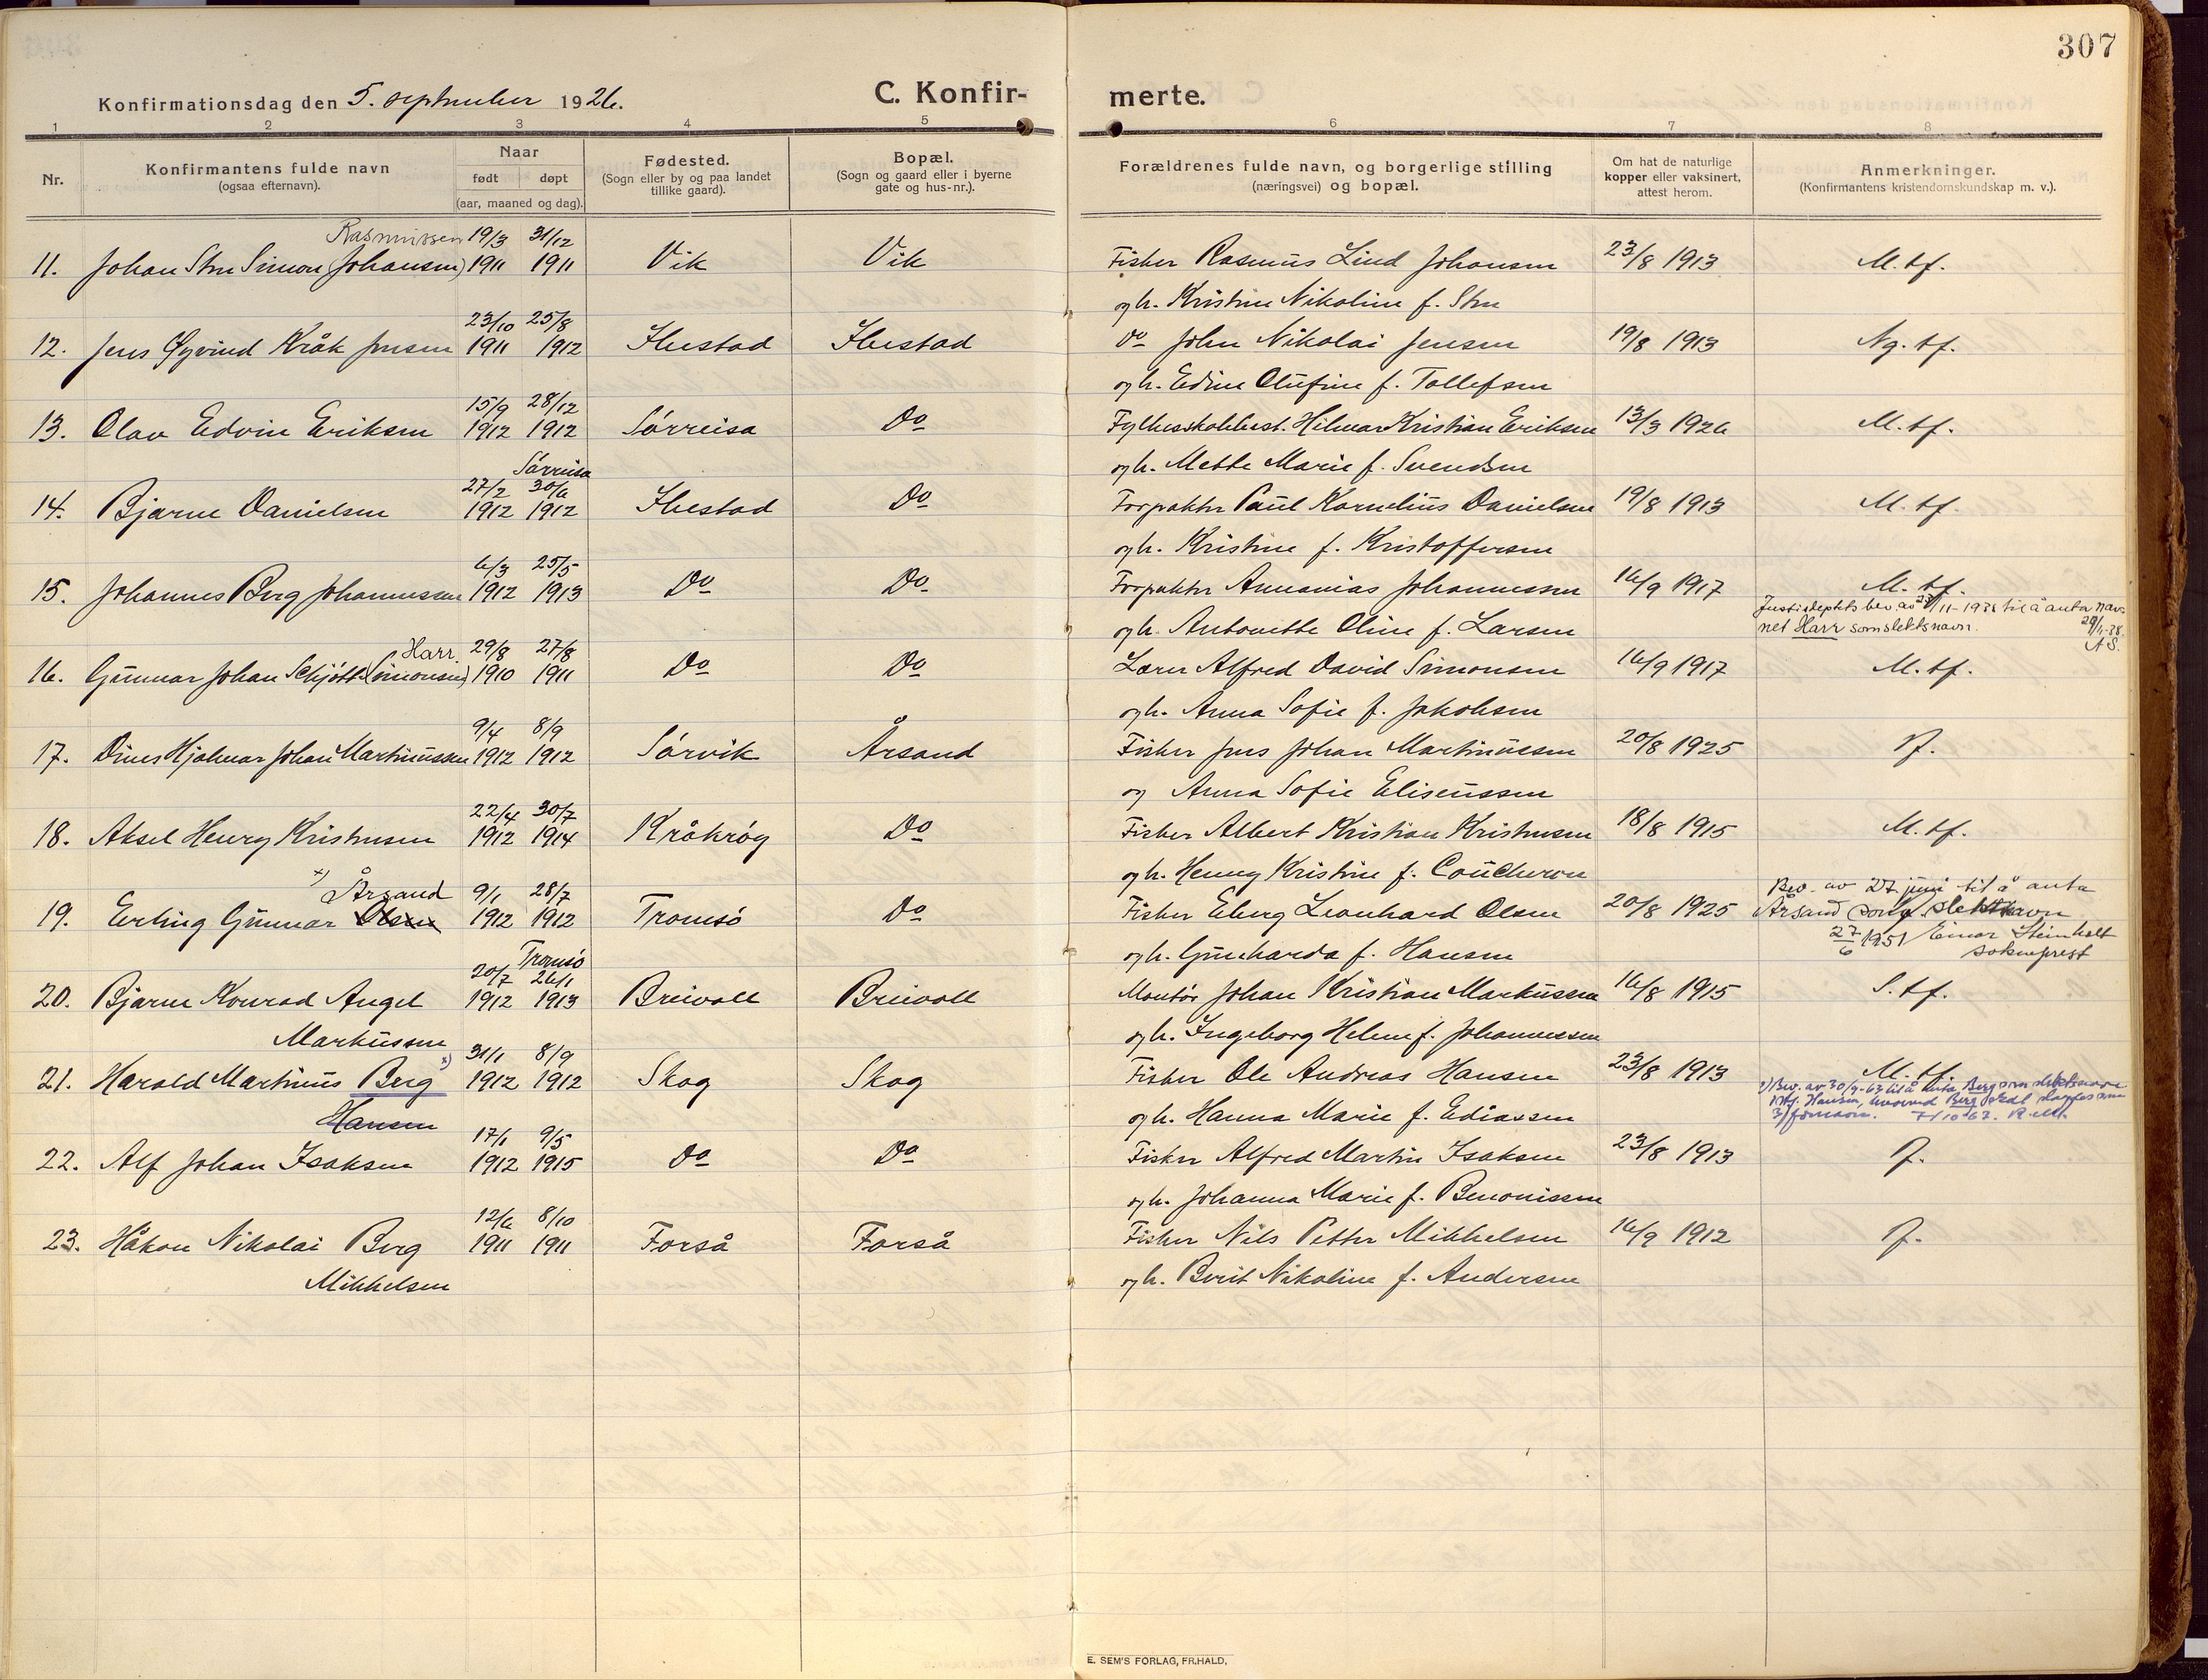 307
Konfirmationsdag den 5. september 1926.
C. Konfir-
merte.
1 2 3 4 5 6 7 8
Nr.
Konfirmantens fulde navn
(ogsaa efternavn).
Naar
født døpt
(aar, maaned og dag).
Fødested.
(Sogn eller by og paa landet
tillike gaard).
Bopæl.
(Sogn og gaard eller i byerne
gate og hus-nr.).
Forældrenes fulde navn, og borgerlige stilling
(næringsvei) og bopæl.
Om hat de naturlige
kopper eller vaksinert,
attest herom.
Anmerkninger.
(Konfirmantens kristendomskundskap m. v.).
Rasmussen 19/3 31/12
11. Johan Stru Simon (Johansen) 1911 1911 Vik Vik Fisker Rasmus Lind Johansen 23/8 1913 M. tf.
og h. Kristine Nikoline f. Stru
23/10 25/8
12. Jens Øyvind Kråk Jensen 1911 1912 Ibestad Ibestad Do John Nikolai Jensen 19/8 1913 Ng. tf.
og h. Edine Olufine f. Tollefsen
15/9 28/12
13. Olav Edvin Eriksen 1912 1912 Sørreisa Do Hilmar Kristian Eriksen 13/3 1926 M. tf.
og h. Mette Marie f. Svendsen
Sørreisa
27/2 30/6
14. Bjarne Danielsen 1912 1912 Ibestad Do Forpakter Paul Kornelius Danielsen 19/8 1913 M. tf.
og h. Kristine f. Kristoffersen
6/3 25/5
15. Johannes Berg Johannessen 1912 1913 Do Do Forpakter Annanias Johannessen 16/9 1917 M. tf.
og h. Antonette Oline f. Larsen
Justisdeptets bev. av 23/11-1938 til å anta nav-
net Harr som slektsnavn.
29/11-38.
A S.
Harr. 29/8 27/8
16. Gunnar Johan Schjött (Simonsen) 1910 1911 Do Do Lærer Alfred David Simonsen 16/9 1917 M. tf.
og h. Anna Sofie f. Jakobsen
9/4 8/9
17. Dines Hjalmar Johan Martinussen 1912 1912 Sørvik Årsand Fisker Jens Johan Martinussen 20/8 1925 N.
og Anna Sofie Eliseussen
22/4 30/7
18. Aksel Henry Kristensen 1912 1914 Kråkrøg Do Fisker Albert Kristian Kristensen 18/8 1915 M. tf.
og h. Henny Kristine f. Coucheron
x) Årsand 9/1 28/7
19. Erling Gunnar Olsen 1912 1912 Tromsø Do Fisker Eberg Leonhard Olsen 20/8 1925
og h. Gunharda f. Hansen
Bev. av 27. juni til å anta
Årsand som slektsnavn
27/6 1951 Einar Steinholt
sokneprest
Tromsø
20/7 26/1
20. Bjarne Konrad Angel 1912 1913 Breivoll Breivoll Montør Johan Kristian Markussen 16/8 1915 S. tf.
Markussen
og h. Ingeborg Helene f. Johannessen
x) 31/1 8/9
21. Harald Martinus Berg 1912 1912 Skog Skog Fisker Ole Andreas Hansen 23/8 1913 M. tf.
Hansen
og h. Hanna Marie f. Ediassen
x) Bev. av 30/9-63 til å anta Berg som slektsnavn
Hansen, hvorved Berg skal sløyfes som
fornavn. 7/10 63. R.M.
17/1 9/5
22. Alf Johan Isaksen 1912 1915 Do Do Fisker Alfred Martin Isaksen 23/8 1913 N.
og h. Johanna Marie f. Benonissen
12/6 8/10
23. Håkon Nikolai Berg 1911 1911 Forså Forså Fisker Nils Petter Mikkelsen 16/9 1912 N.
Mikkelsen
og h. Berit Nikoline f. Andersen
E. SEM'S FORLAG, FR.HALD,